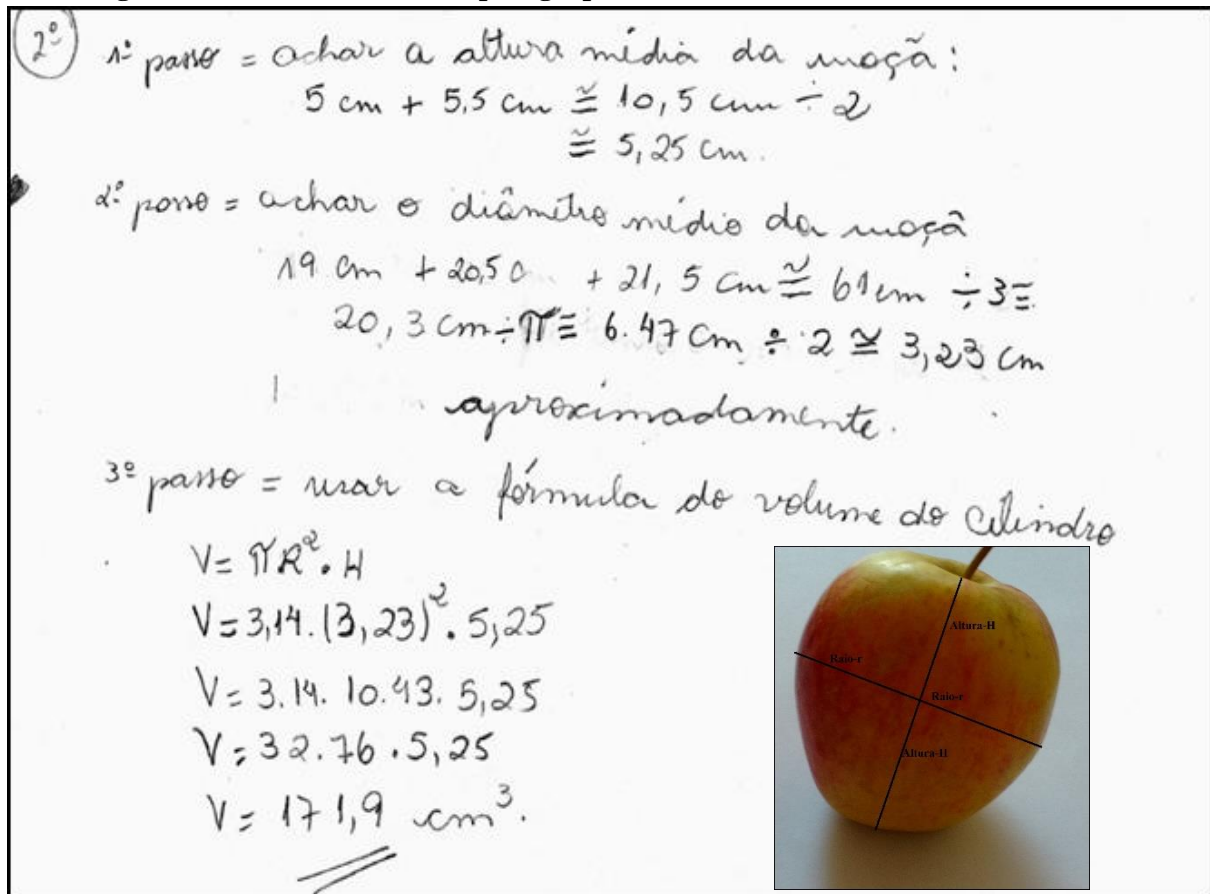 2º
1º passo = achar a altura média da maçã:
5 cm + 5,5 cm ≅ 10,5 cm ÷ 2
≅ 5,25 cm.
2º passo = achar o diâmetro médio da maçã
19 cm + 20,5 c + 21,5 cm ≅ 61 cm ÷ 3 ≡
20,3 cm ÷ π ≡ 6.47 cm ÷ 2 ≅ 3,23 cm
aproximadamente.
3º passo = usar a fórmula do volume do cilindro
V = πR². H
V = 3,14. (3,23)². 5,25
V = 3.14. 10.43. 5,25
V = 32.76 . 5,25
V = 171,9 cm³.
Altura-H
Raio-r
Raio-r
Altura-H